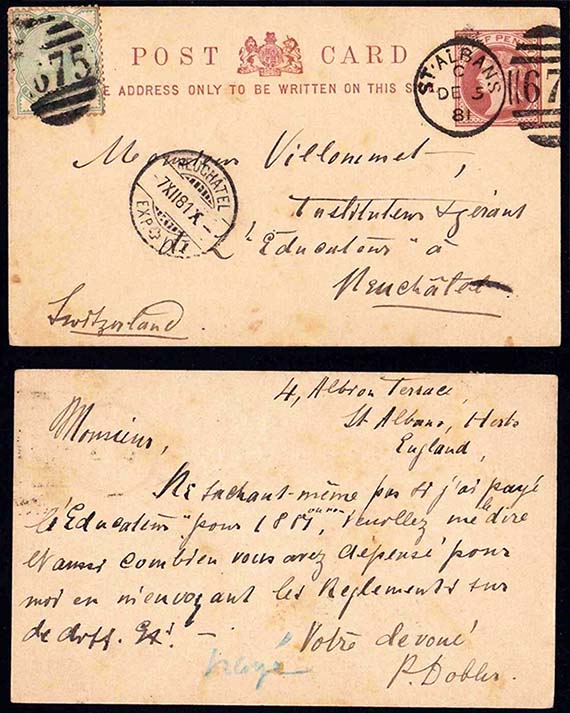 POST CARD
E ADDRESS ONLY TO BE WRITTEN ON THIS S
675
ST ALBANS
C
DE 5
81
67
NEUCHATEL
7XII81X
EXP
Monsieur Villommet,
Instituteur & gérant
"Educateur" à
Neuchâtel.
Switzerland.
4, Albion Terrace
St Albans, Herts
England,
Monsieur,
Ne sachant-même pas si j'ai payé
l'Educateur" pour 1881, veuillez me le dire
et aussi combien vous avez depensé pour
moi en m'envoyant les Reglements sur
de diff.
Votre devoué
P. Dobler.